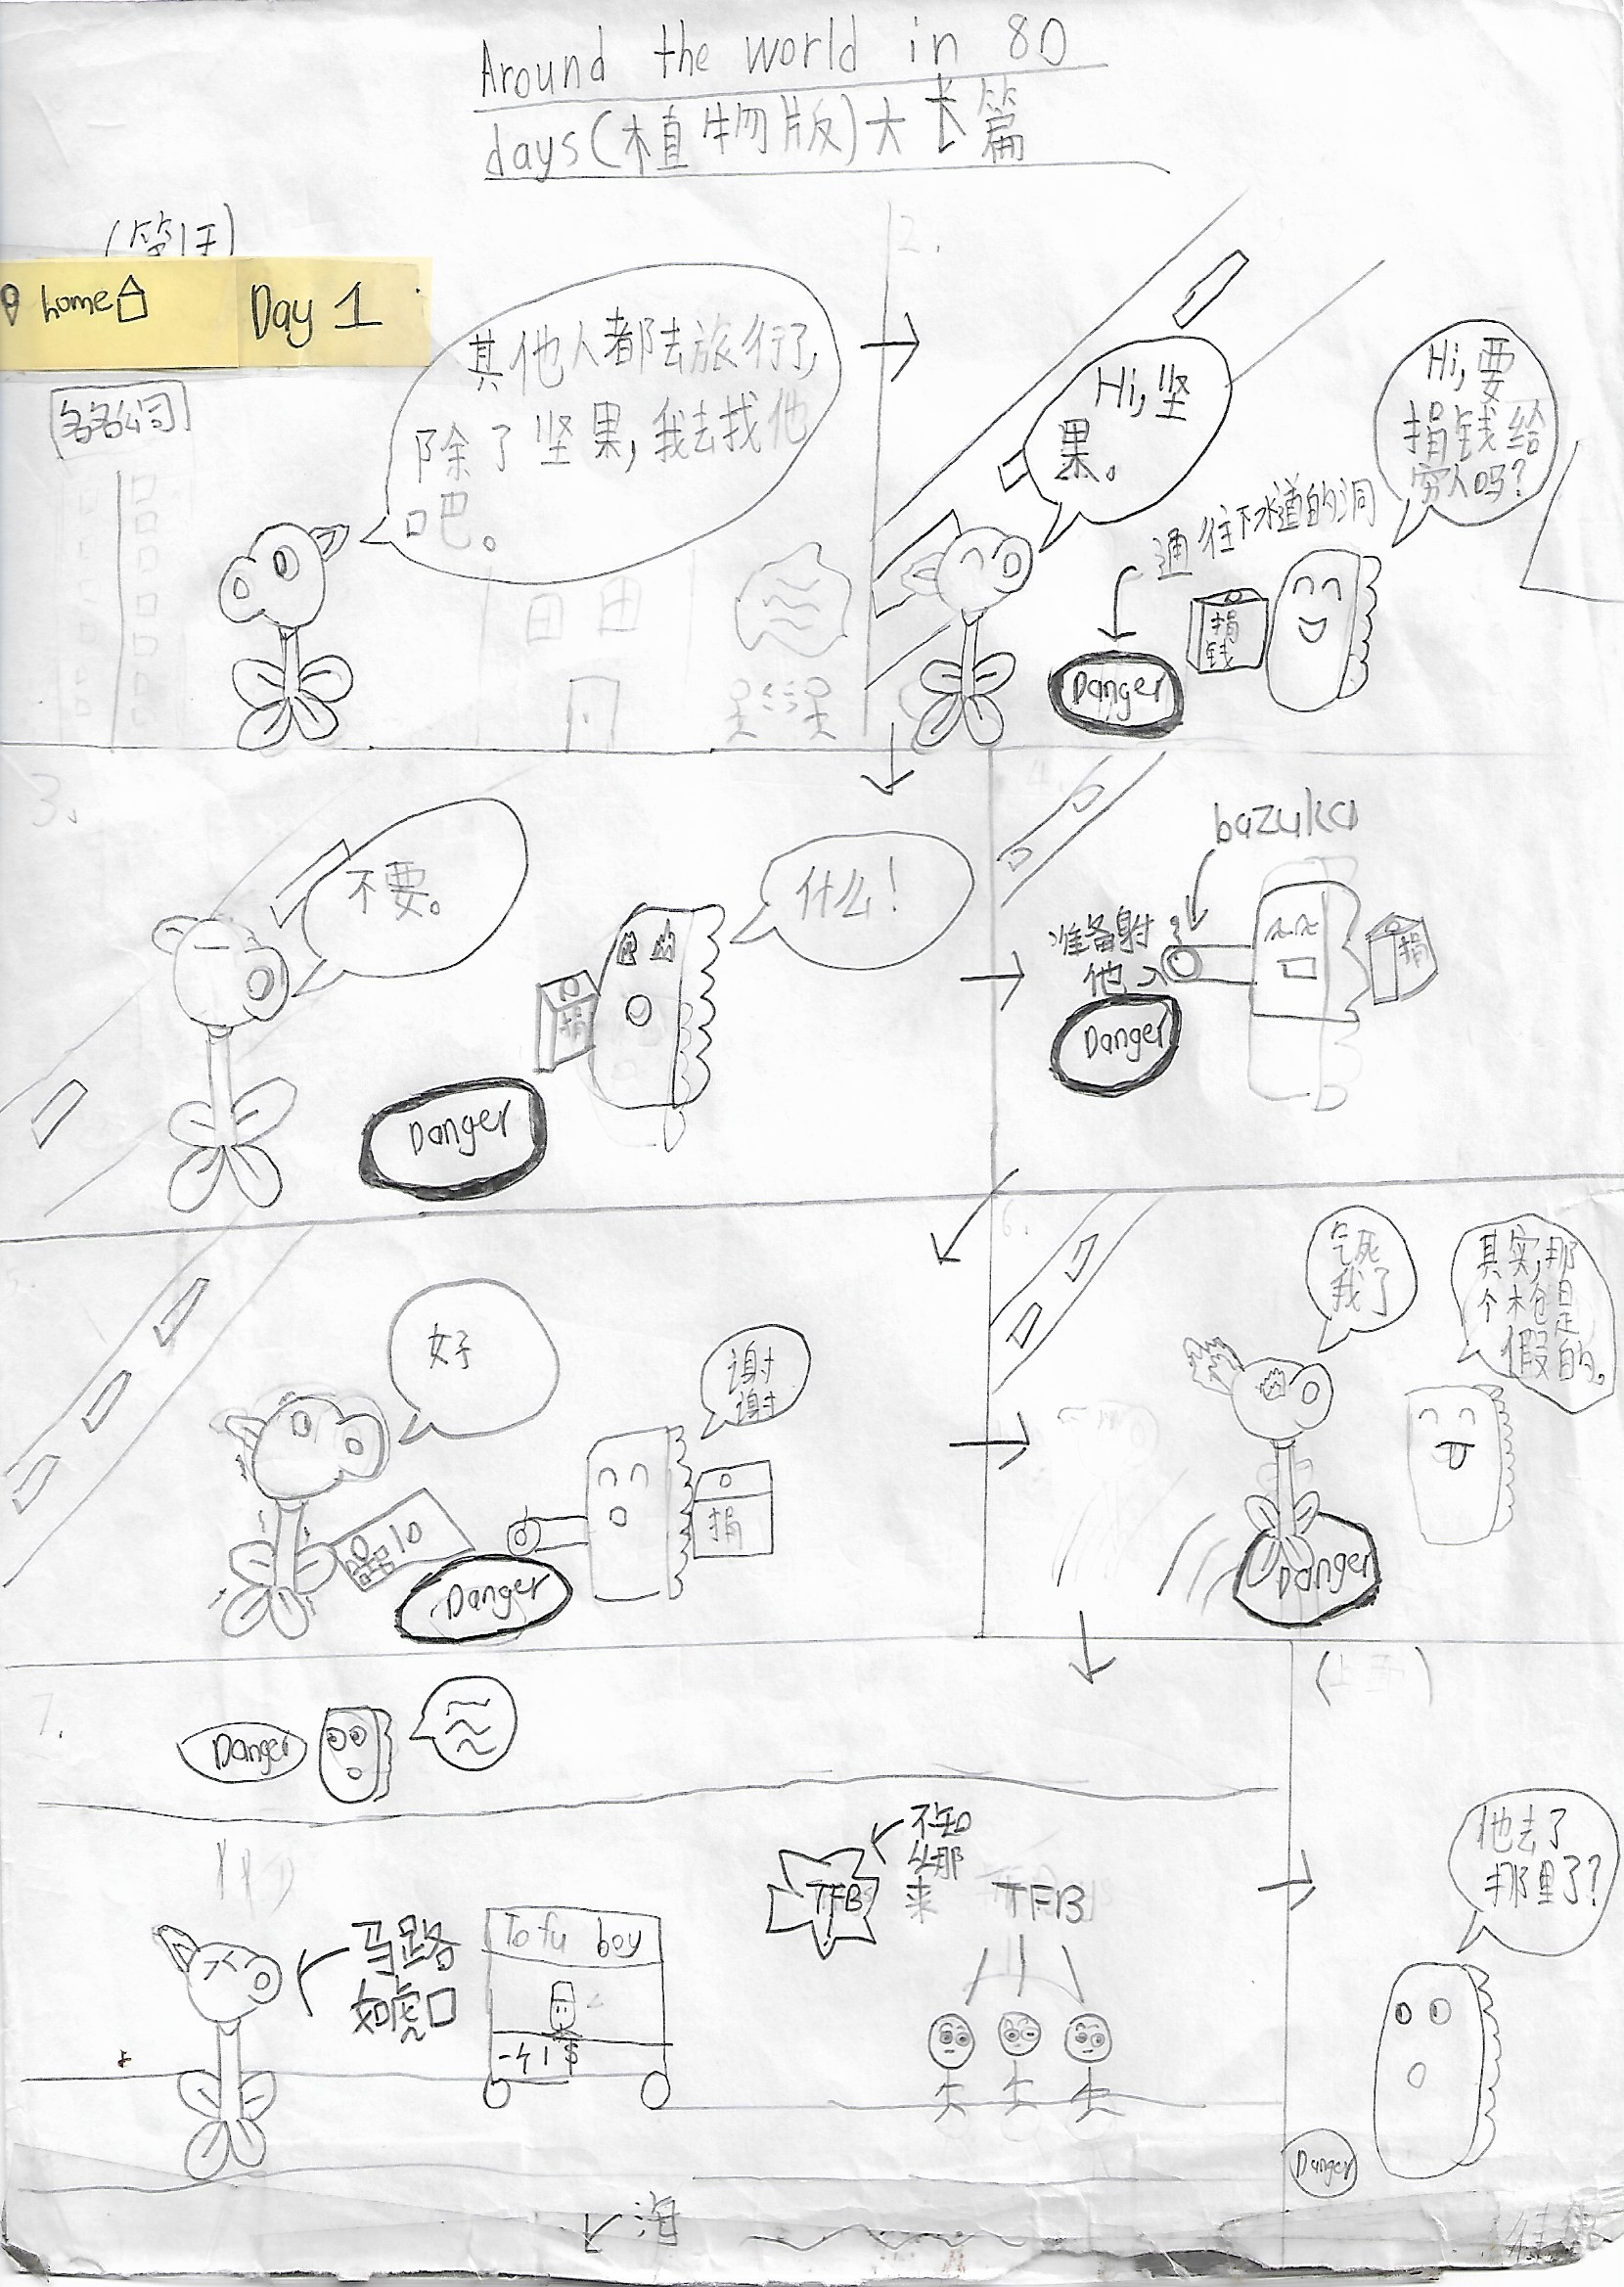 Around the world in 80
days(植物版)大长篇
home
Day 1
其他人都去旅行了,
除了坚果,我去找他
吧。
2.
Hi,坚
果。
Hi,要
捐钱给
穷人吗?
通往下水道的洞
捐
钱
Danger
3.
不要。
什么!
捐
Danger
bazuka
准备射
他
捐
Danger
好
谢
谢
10
捐
Danger
6.
气死
我了
其实,那
个枪是
假的。
Danger
7.
Danger
(上面)
不知
从那
来
TFB
TFB
马路
如虎口
Tofu boy
他去了
那里了?
Danger
海